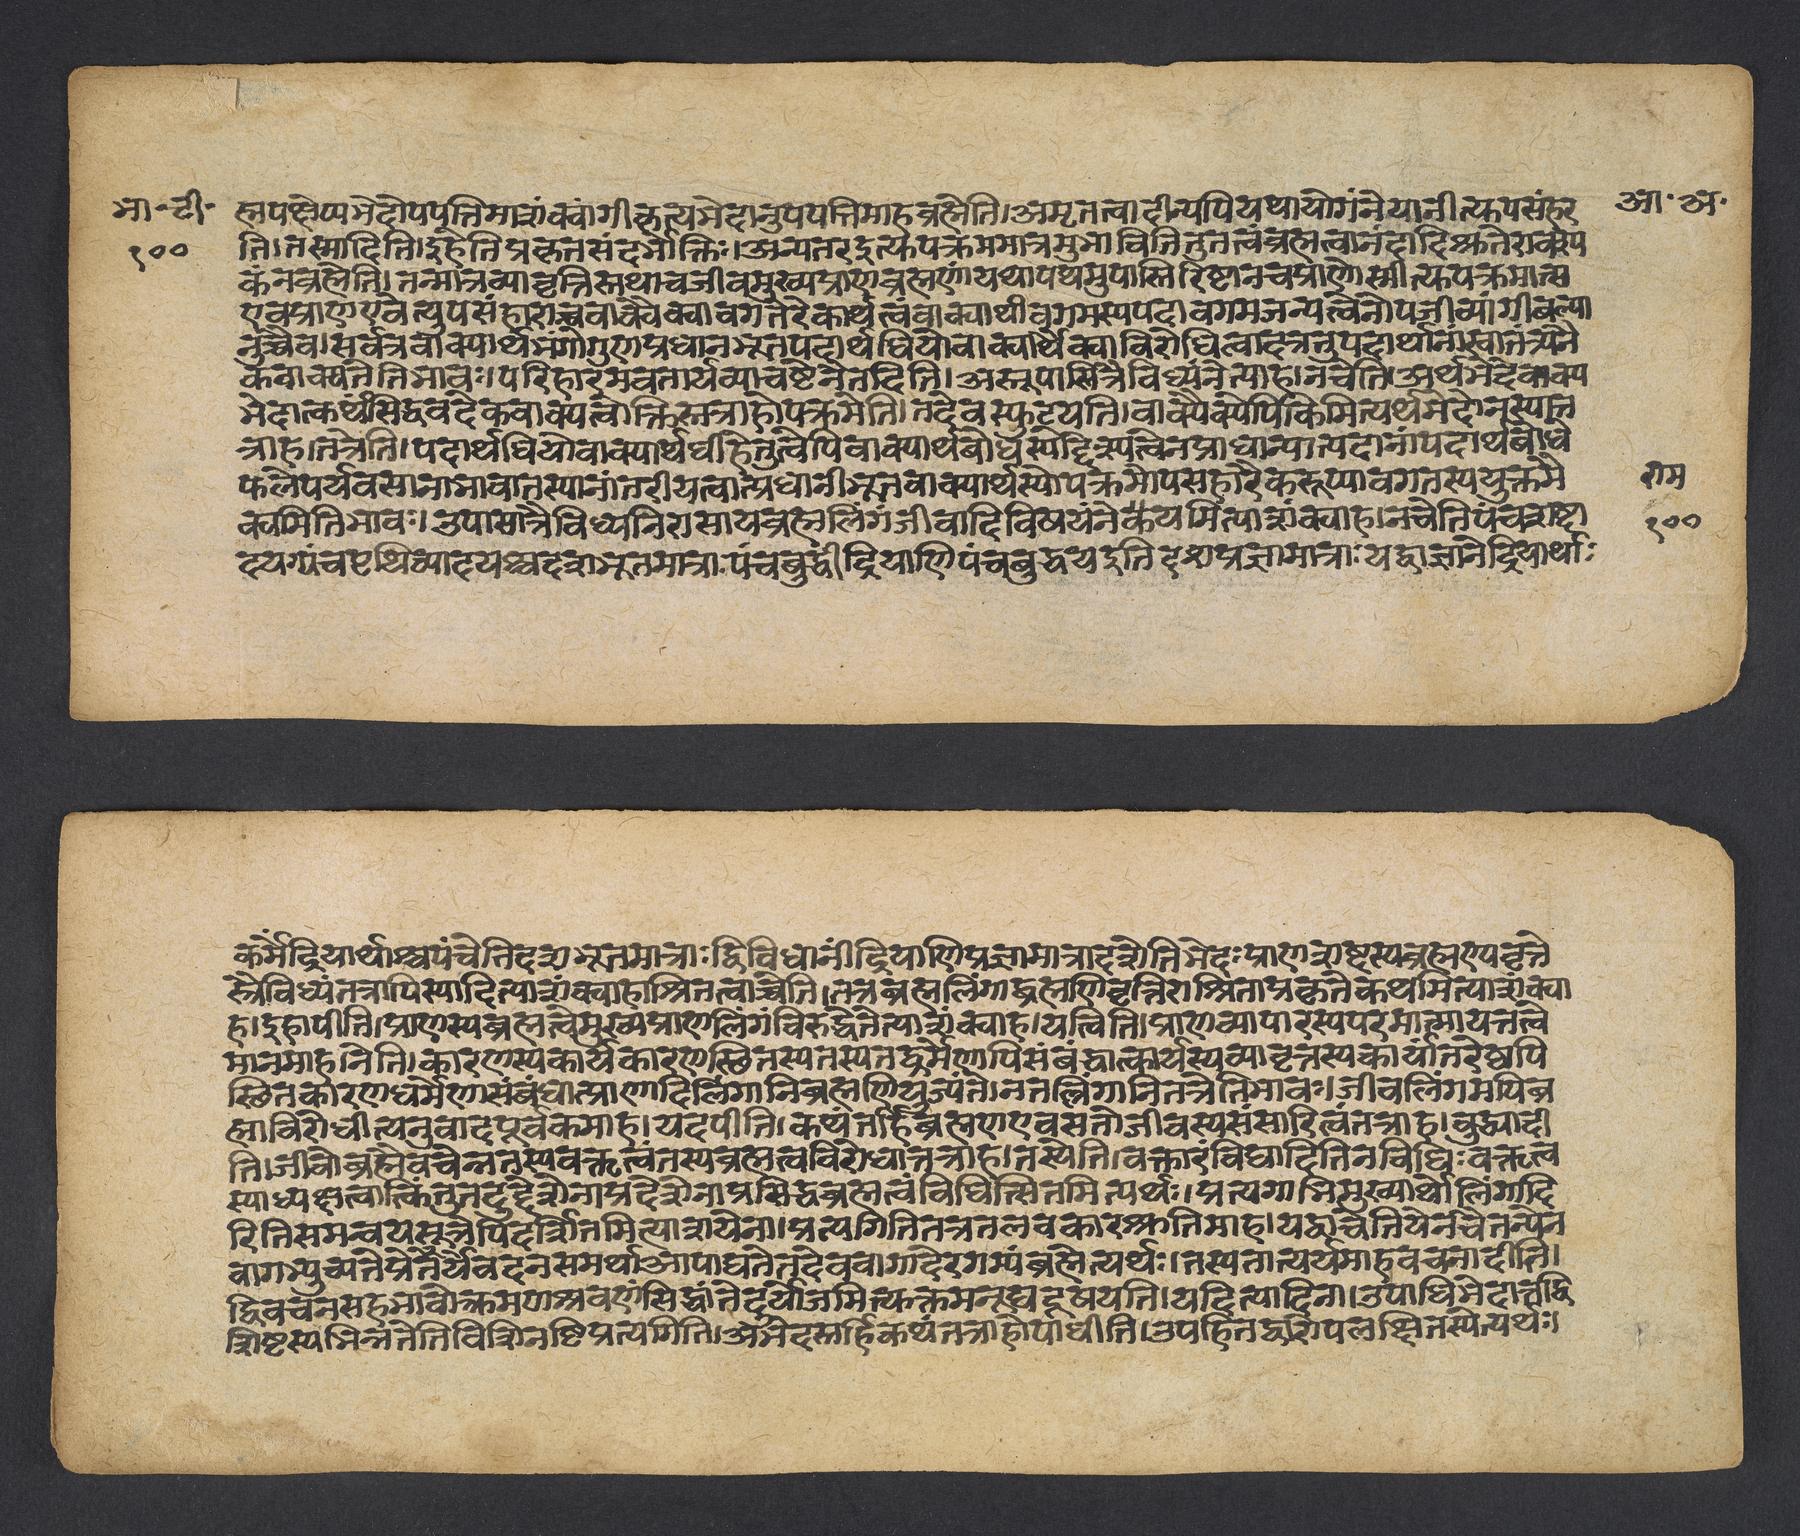 भा॰ टी॰
१००
ह्मपक्षेप्यभेदोपपत्तिमाशंक्यांगीकृत्यभेदानुपपत्तिमाहब्रह्मेति।अमृतत्वादीन्यपियथायोगंनेयानीत्युपसंहर
ति।तस्मादिति।इहेतिप्रकृतसंदर्भोक्तिः।अन्यतरइत्युपक्रममात्रमुभावितितुतत्त्वंब्रह्मत्वानंदादिश्रुतेरावश्यं
कंनब्रह्मेति।तन्मात्रव्यावृत्तिस्तथाचजीवमुख्यप्राणब्रह्मणांयथापथमुपास्तिरिष्टानचप्राणोस्मीत्युपक्रमात्स
एवप्राणएवेत्युपसंहाराच्चवाक्यैक्यावगतेरेकार्थत्वंवाक्यार्थावगमस्यपदावगमजन्यत्वेनोपजीव्यांगीबल्या
नुच्चेव।सर्वत्रवाक्यार्थभंगोगुणप्रधानभूतपदार्थधियोवाक्यार्थैक्याविरोधित्वादत्रतुपदार्थानांस्वातंत्र्येनै
कवाक्यतेतिभावः।परिहारमवतार्यव्याचष्टेनैतदिति।अस्तूपास्तित्रैविध्यंनेत्याह।नचेति।अर्थभेदेवाक्य
भेदात्कथंसिद्धवदेकवाक्यत्वोक्तिस्तत्राहोपक्रमेति।तदेवस्फुटयति।वाक्यैक्येपिकिमित्यर्थभेदोनस्यात्त
त्राह।तत्रेति।पदार्थधियोवाक्यार्थधीहेतुत्वेपिवाक्यार्थबोधस्योद्दिश्यत्वेनप्राधान्यात्पदानांपदार्थबोधे
फलेपर्यवसानाभावात्तस्यानांतरीयत्वात्प्रधानीभूतवाक्यार्थस्योपक्रमोपसंहारैकरूप्यावगतस्ययुक्तमै
क्यमितिभावः।उपासात्रैविध्यनिरासायब्रह्मलिंगंजीवादिविषयंनेकयमित्याशंक्याह।नचेतिपंचशष्टा
दयग्यंचष्टथिव्यादयश्चदशभूतमात्राःपंचबुद्धींद्रियाणिपंचबुद्धयइतिदशप्रज्ञामात्राःयद्वाज्ञानेंद्रियार्थाः
आ॰ अ॰
राम
१००
कर्मेंद्रियार्थाश्चपंचेतिदशभूतमात्राःद्विविधानींद्रियाणिप्रज्ञामात्रादशेतिभेदःप्राणशष्टस्यब्रह्मण्यवृत्ते
स्त्रैविध्यंतत्रापिस्यादित्याशंक्याहाश्रितत्वाच्चेति।तत्रब्रह्मलिंगाद्ब्रह्मणिवृत्तिराश्रिताप्रकृतेकथमित्याशंक्या
ह।इहापीति।प्राणस्यब्रह्मत्वेमुख्यप्राणलिंगंविरुद्धेतेत्याशंक्याह।यत्त्विति।प्राणव्यापारस्यपरमात्मायत्तत्वे
मानमाहनेति।कारणस्यकार्यकारणस्थितस्यतस्यतद्धर्मेणापिसंबंद्धात्कार्यस्यव्यावृत्तस्यकार्यांतरेष्वपि
स्थितकारणधर्मेणासंबंधात्प्राणादिलिंगानिब्रह्मणियुंज्यंते।नतल्लिंगानितत्रेतिभावः।जीवलिंगमपिब्र
ह्माविरोधीत्यनुवादपूर्वकमाह।यदपीति।कथंतर्हिब्रह्मणएवसतोजीवस्यसंसारित्वंतत्राह।बुद्ध्यादी
ति।जीवोब्रह्मैवचेन्नतस्यवक्तृत्वंतस्यब्रह्मत्वविरोधात्तत्राह।तस्येति।वक्तारंविद्यादितिनविधिःवक्तृत्व
स्याध्यक्षत्वात्किंतुतदुद्देशेनाप्रदेशेनाप्रसिद्धब्रह्मत्वंविधित्सितमित्यर्थः।प्रत्यगाभिमुख्यार्थोलिंगादि
रितिसमन्वयसूत्रेपिदर्शितमित्याशयेना।प्रत्यगितितत्रतलवकारश्रुतिमाह।यद्वाचेतियेनचैतन्येन
वागभ्युच्यतेप्रेर्तेर्येवदनसमर्थाआपाद्यतेतदेववागादेरगम्यंब्रह्मेत्यर्थः।तस्यतात्पर्यमाहवचनादीति।
द्विवचनसहभावोक्रमणश्रवणंसिद्धांतेदुर्योजमित्युक्तमनूद्यदूषयति।यदित्यादिना।उपाधिभेदात्तद्वि
शिष्टस्यभिन्नतेतिविशिनष्टिप्रत्यगिति।अभेदस्तर्हिकथंतत्राहोपाधीति।उपहितद्वारोपलक्षितस्येत्यर्थः।